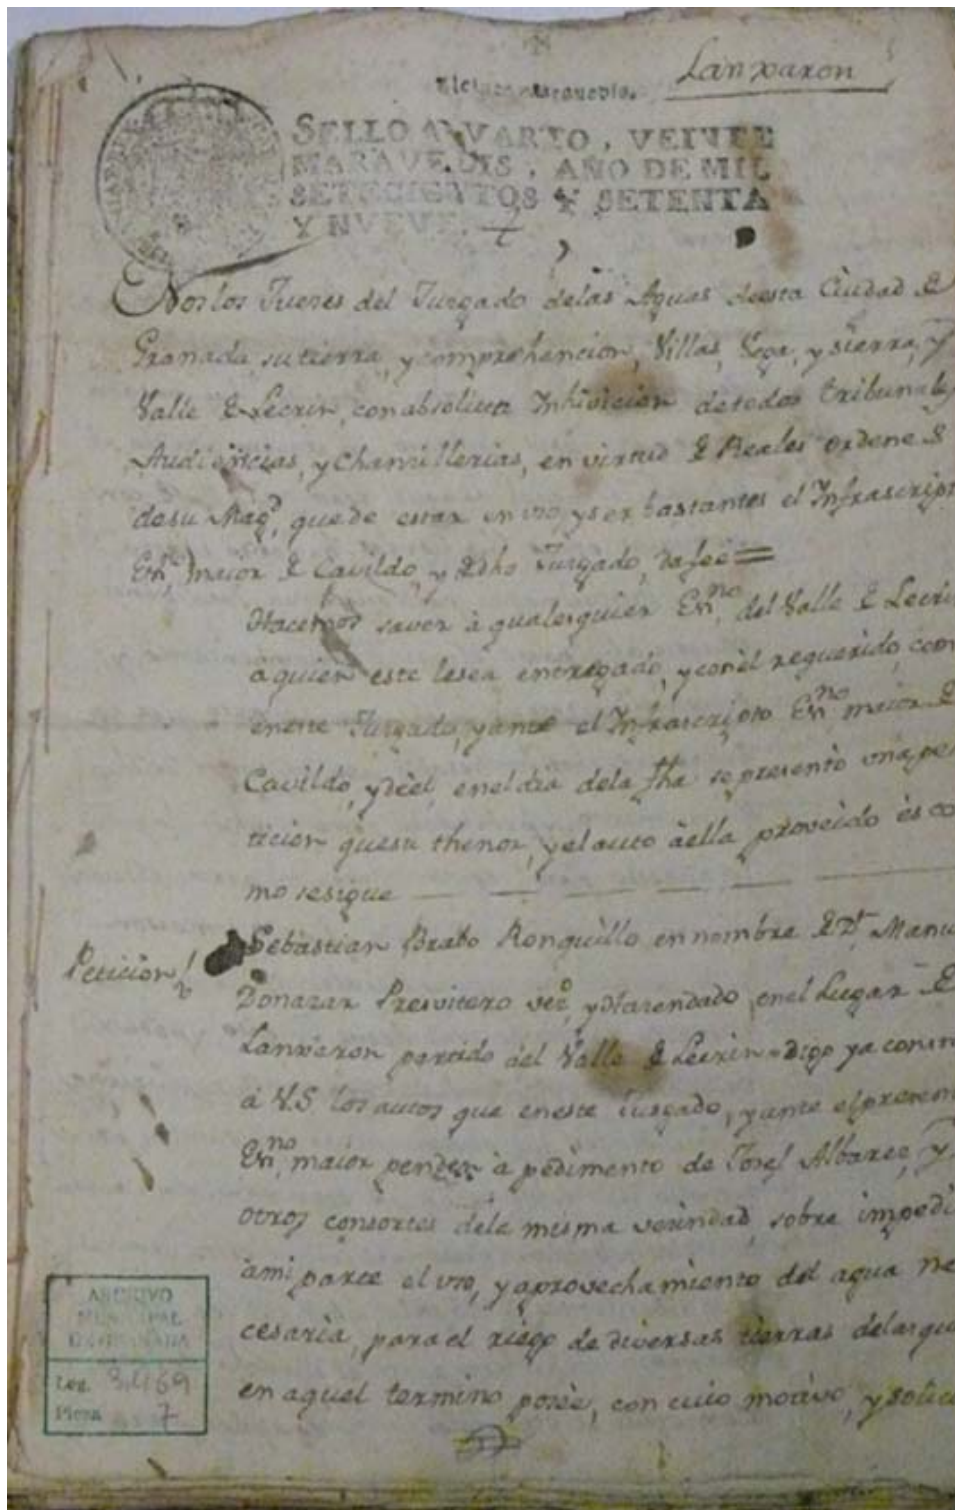 Lanxaron
SELLO QVARTO, VEINTE
MARAVEDIS, AÑO DE MIL
SETECIENTOS Y SETENTA
Y NVEVE.
Nos los Jueses del Juzgado delas Aguas deesta Ciudad de
Granada, sutierra, y comprehencion, Villas, Vega, y Sierra, y
Valle de Lecrin, conabsoluta Inhivicion detodos tribunales
Audiencias, y Chansillerias, en virtud de Reales ordenes
desu Magd. quede estar en vso, yser bastantes el Infrascript
Esno. maior de Cavildo, y dedho Juzgado, dafee =
Hacemos saver à qualesquier Esno. del Valle de Lecrin
àquien este lesea entregado, yconèl requerido, como
eneste Juzgado, yante el Infrascripto Esno. maior de
Cavildo, ydeèl, eneldia dela fha sepresentò vna pe
ticion quesu thenor, yelauto àella proveido ès co
mo sesigue
Peticion
Sebastian Brabo Ronquillo en nombre de Dn. Manu
Donazar Presvitero vezo. y Hasendado, enel Lugar de
Lanxaron partido del Valle de Lecrin = Digo ya consn
à V.S los autos que eneste Jusgado, yante elpresen
Esno. maior penden à pedimento de Josef Albarez, y
otros consortes dela misma vesindad, sobre impedi
àmi parte el vso, y aprovechamiento del agua ne
cesaria, para el riego de diversas tierras delasqu
en aquel termino poseè, con cuio motivo, y solici
ARCHIVO
MUNICIPAL
DE GRANADA
Leg. 3.469
Pieza 7